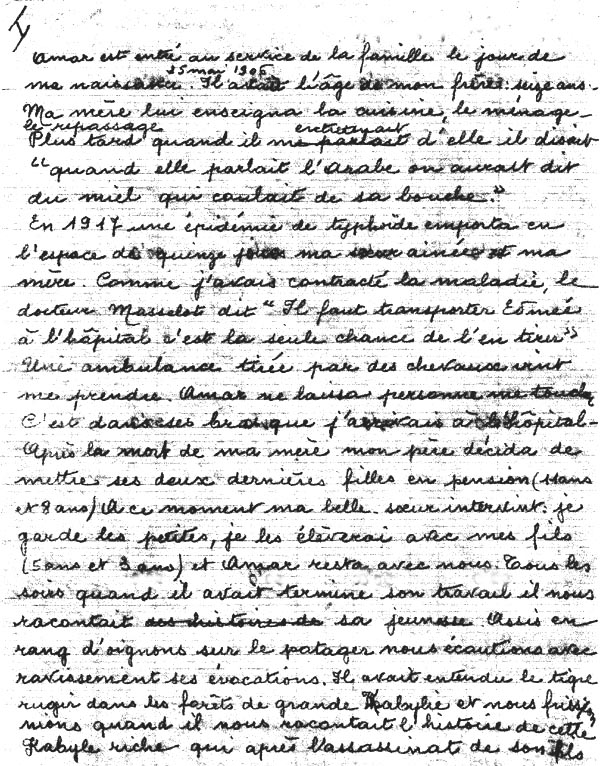 Amar est entré au service de la famille le jour de
25 mai 1906
ma naissance. Il avait l'âge de mon frère: seize ans.
Ma mère lui enseigna la cuisine, le ménage,
le repassage
entretenait
Plus tard quand il me parlait d'elle il disait
"quand elle parlait l'Arabe on aurait dit
du miel qui coulait de sa bouche."
En 1917 une épidémie de typhoïde emporta en
l'espace de quinze jours ma sœur ainée et ma
mère. Comme j'avais contracté la maladie, le
docteur Masselot dit "Il faut transporter Edmée
à l'hôpital c'est la seule chance de l'en tirer"
Une ambulance tirée par des chevaux vint
me prendre. Amar ne laissa personne me toucher
C'est dans ses bras que j'arrivais à l'hôpital-
Après la mort de ma mère mon père décida de
mettre ses deux dernières filles en pension (11ans
et 8 ans) A ce moment ma belle-sœur intervint: je
garde les petites, je les élèverai avec mes fils
(5ans et 3 ans) et Amar resta avec nous. Tous les
soirs quand il avait terminé son travail il nous
racontait des histoires de sa jeunesse Assis en
rang d'oignons sur le potager nous écoutions avec
ravissement ses évocations. Il avait entendu le tigre
rugir dans les forêts de grande Kabylie et nous frissonnions quand il nous racontait l'histoire de cette
Kabyle riche qui après l'assassinat de son fils